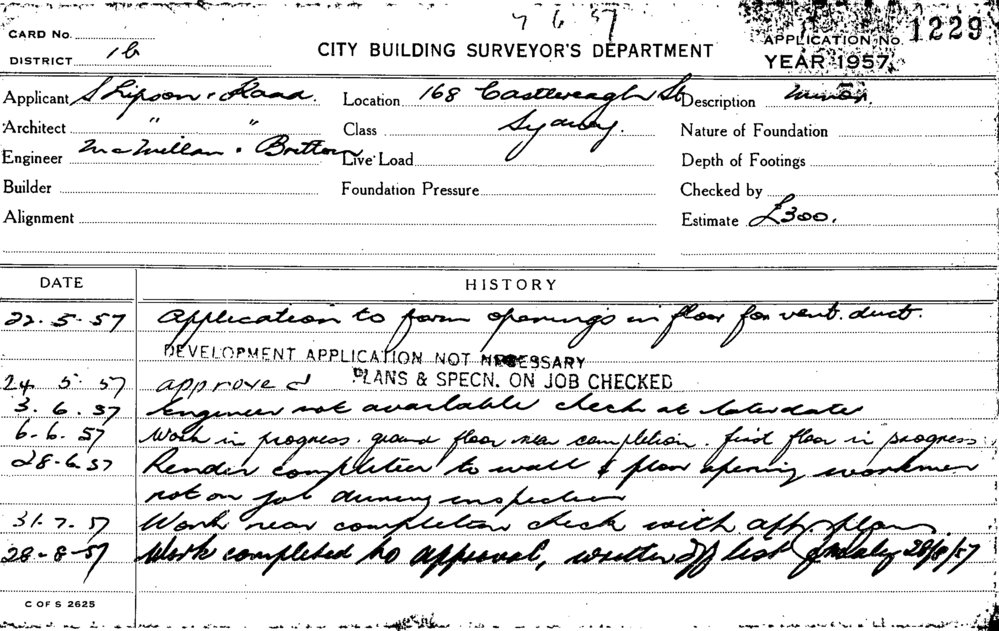 7 6 57
CARD No.
APPLICATION No. 1229
DISTRICT 1b
CITY BUILDING SURVEYOR'S DEPARTMENT
YEAR 1957.
Applicant Shipson & Location 168 Castlereagh St Description minor.
Architect " " Class Sydney. Nature of Foundation
Engineer McMillan & Brittain Live Load Depth of Footings
Builder Foundation Pressure Checked by
Alignment Estimate £300.
DATE HISTORY
22.5.57 Application to form openings in floor for vent. duct.
DEVELOPMENT APPLICATION NOT NECESSARY
24 5 57 approved PLANS & SPECN. ON JOB CHECKED
3.6.57 Engineer not available check at later date
6.6.57 Work in progress. ground floor near completion. first floor in progress.
28-6.57 Render completed to wall & floor opening workmen
not on job during inspection
31.7.57 Work near completion check with app. plans
28-8-57 Work completed to approval, written off list 28/8/57
C OF S 2625